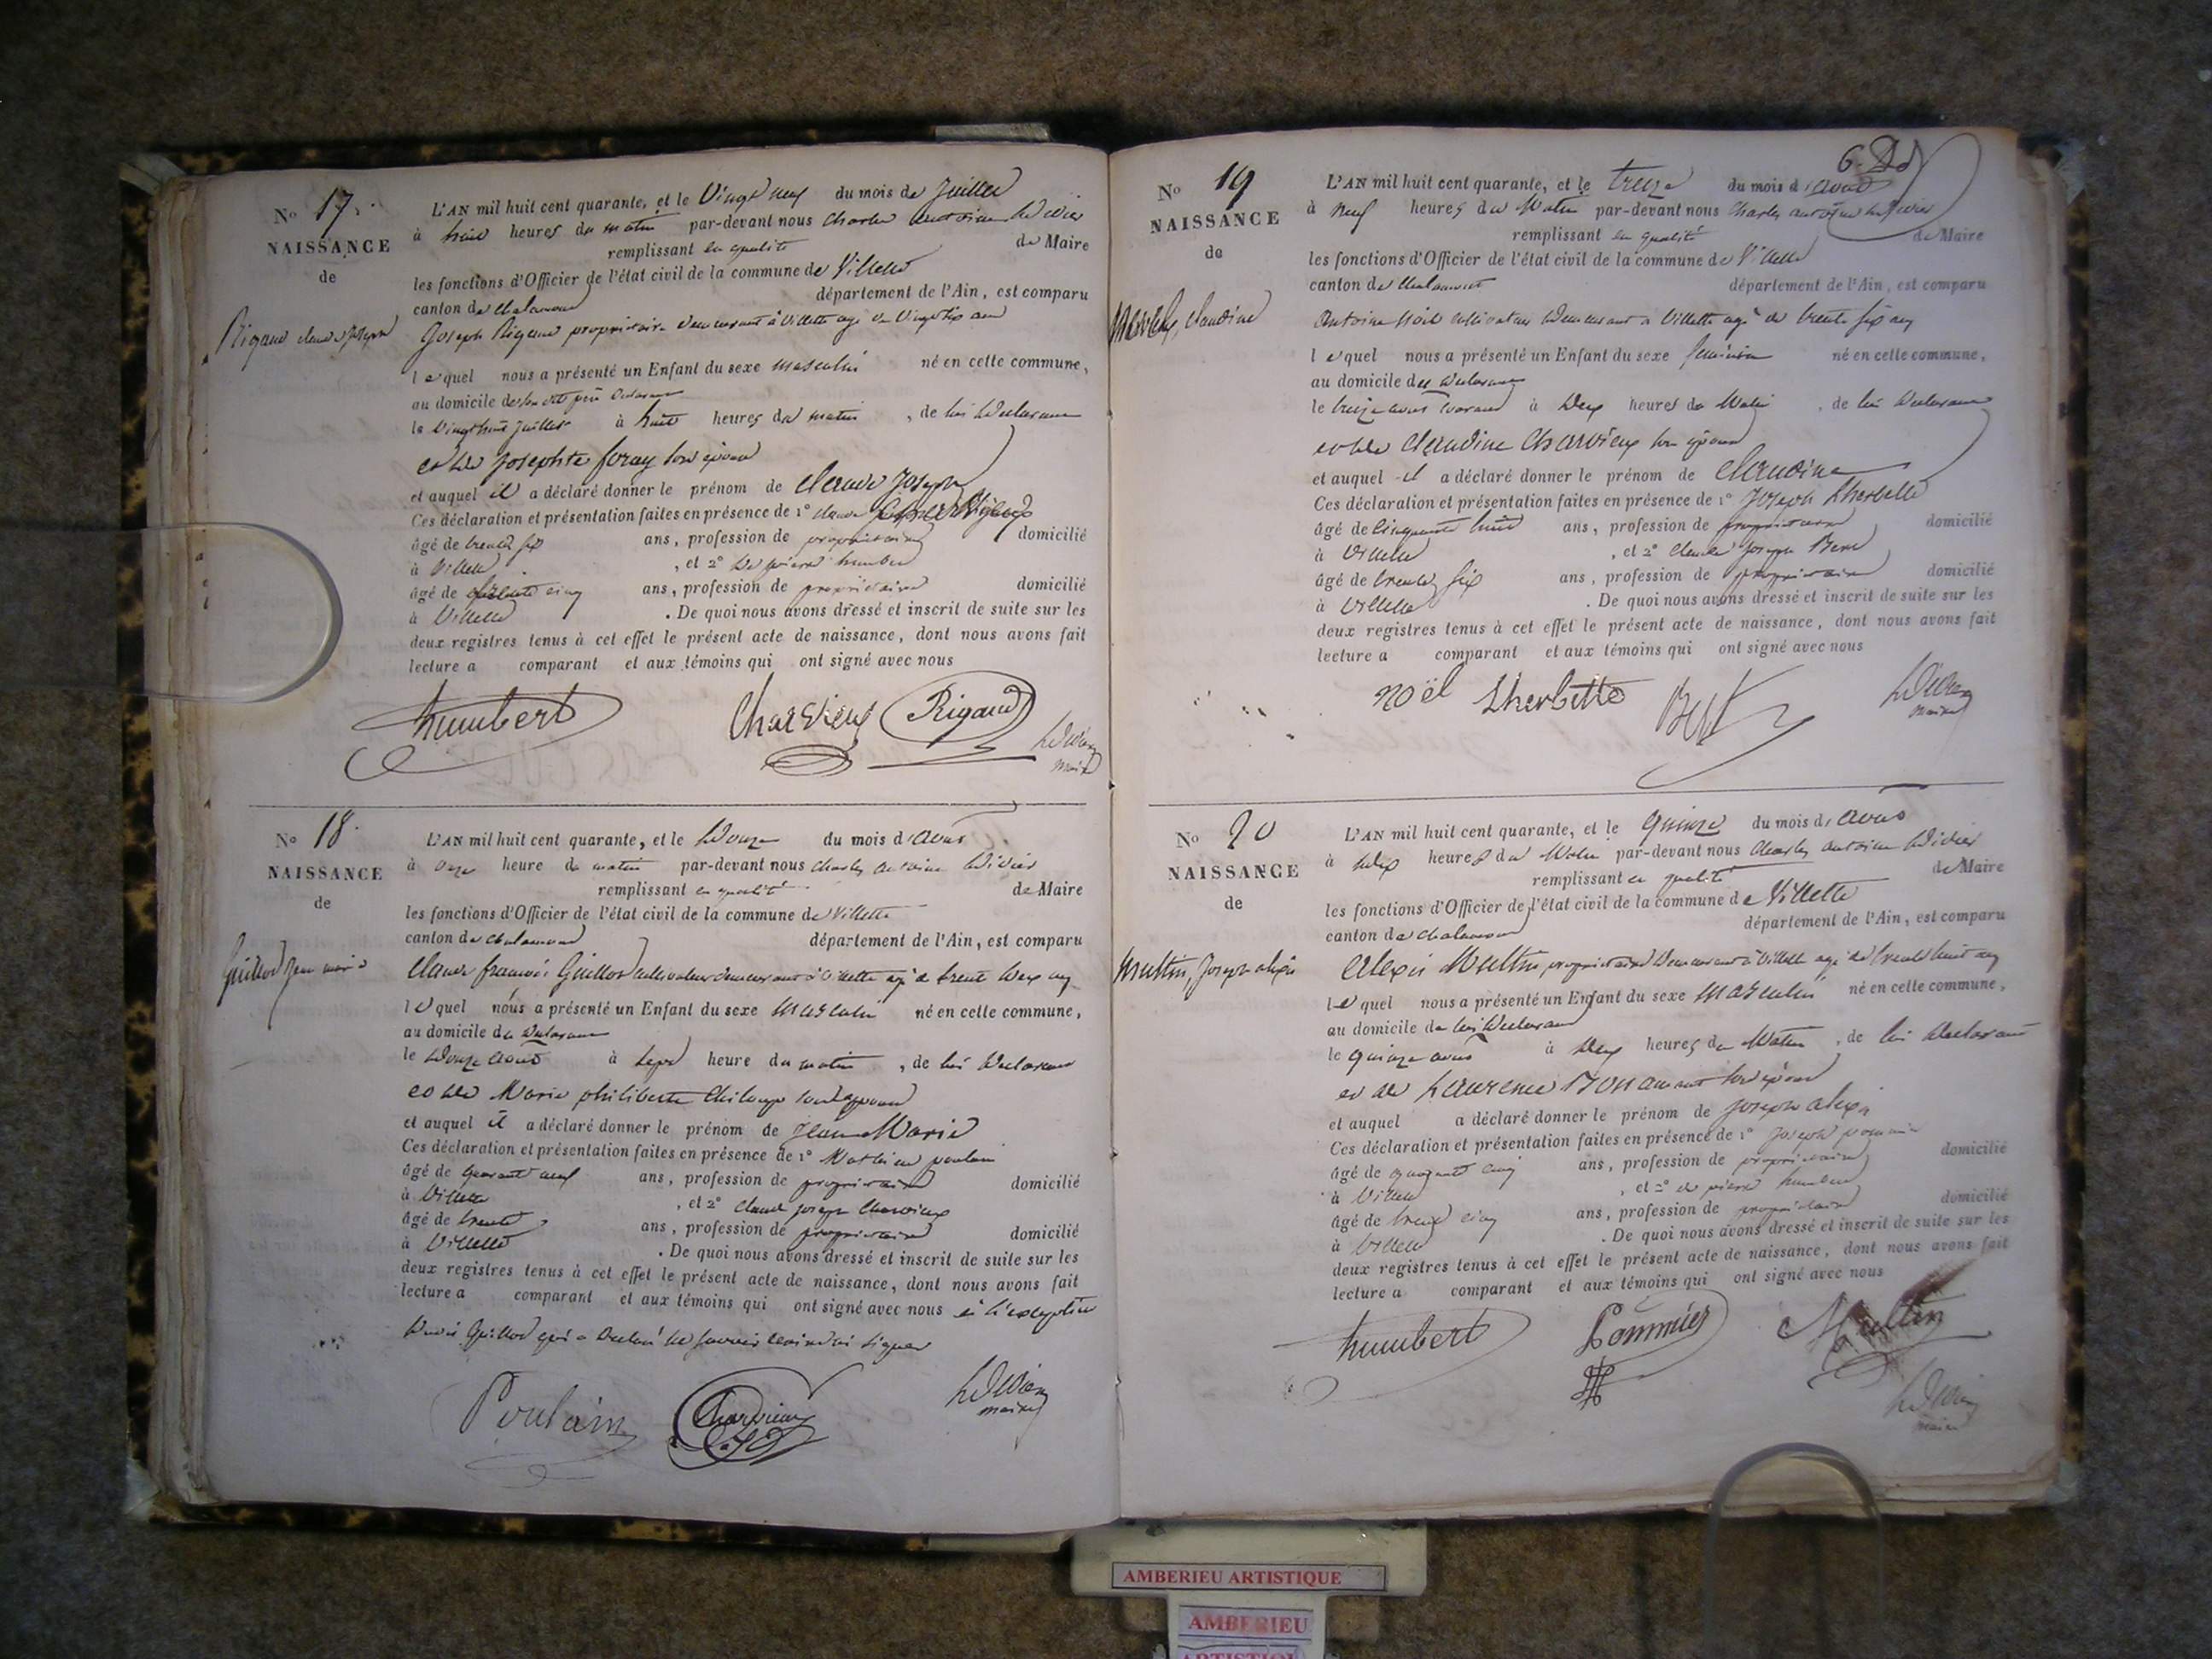 No 17.
NAISSANCE
de
Rigaud claude Joseph
L'AN mil huit cent quarante, et le Vingt neuf du mois de Juillet
à heures du matin par-devant nous Charles antoine
remplissant en qualité de Maire
les fonctions d'Officier de l'état civil de la commune de Villette
canton de Chalamont département de l'Ain, est comparu
Joseph Rigaud propriétaire demeurant à Villette agé de Vingt six ans
lequel nous a présenté un Enfant du sexe masculin né en cette commune,
au domicile de
le Vingt huit Juillet à huit heures du matin, de lui déclarant
et de Josephte foray son épouse
et auquel il a déclaré donner le prénom de Claude Joseph
Ces déclaration et présentation faites en présence de 1° claude
âgé de trente six ans, profession de propriétaire domicilié
à Villette, et 2° de pierre humbert
âgé de cinq ans, profession de propriétaire domicilié
à Villette. De quoi nous avons dressé et inscrit de suite sur les
deux registres tenus à cet effet le présent acte de naissance, dont nous avons fait
lecture a comparant et aux témoins qui ont signé avec nous
humbert Charvieux Rigaud
maire
No 18.
NAISSANCE
de
Guillod Jean marie
L'AN mil huit cent quarante, et le Douze du mois d'aout
à onze heure du matin par-devant nous Charles antoine
remplissant en qualité de Maire
les fonctions d'Officier de l'état civil de la commune de Villette
canton de chalamont département de l'Ain, est comparu
Claude francois Guillod cultivateur demeurant à Villette agé de trente deux ans
lequel nous a présenté un Enfant du sexe masculin né en cette commune,
au domicile du déclarant
le Douze aout à sept heure du matin, de lui déclarant
et de Marie philiberte son épouse
et auquel il a déclaré donner le prénom de Jean Marie
Ces déclaration et présentation faites en présence de 1° Mathieu poulain
âgé de quarante neuf ans, profession de propriétaire domicilié
à Villette, et 2° claude joseph Charvieux
âgé de trente ans, profession de propriétaire domicilié
à Villette. De quoi nous avons dressé et inscrit de suite sur les
deux registres tenus à cet effet le présent acte de naissance, dont nous avons fait
lecture a comparant et aux témoins qui ont signé avec nous à l'exception
Guillod qui a déclaré ne savoir signer
Poulain Charvieux
maire
No 19
NAISSANCE
de
Claudine
L'AN mil huit cent quarante, et le treize du mois d'aout
à neuf heures du Matin par-devant nous Charles antoine
remplissant en qualité de Maire
les fonctions d'Officier de l'état civil de la commune de Villette
canton de Chalamont département de l'Ain, est comparu
Antoine Noël cultivateur demeurant à Villette agé de trente six ans
lequel nous a présenté un Enfant du sexe féminin né en cette commune,
au domicile du déclarant
le treize aout courant à deux heures du Matin, de lui déclarant
et de Claudine Charvieux son épouse
et auquel il a déclaré donner le prénom de Claudine
Ces déclaration et présentation faites en présence de 1° Joseph Lherbette
âgé de Cinquante huit ans, profession de propriétaire domicilié
à Villette, et 2° Claude Joseph
âgé de trente six ans, profession de propriétaire domicilié
à Villette. De quoi nous avons dressé et inscrit de suite sur les
deux registres tenus à cet effet le présent acte de naissance, dont nous avons fait
lecture a comparant et aux témoins qui ont signé avec nous
noël Lherbette
maire
No 20
NAISSANCE
de
Multin, Joseph alexis
L'AN mil huit cent quarante, et le Quinze du mois d'aout
à heures du Matin par-devant nous Charles antoine
remplissant en qualité de Maire
les fonctions d'Officier de l'état civil de la commune de Villette
canton de chalamont département de l'Ain, est comparu
Alexis Multin propriétaire demeurant à Villette agé de trente huit ans
lequel nous a présenté un Enfant du sexe masculin né en cette commune,
au domicile de lui déclarant
le quinze aout à deux heures du Matin, de lui déclarant
et de Laurence son épouse
et auquel a déclaré donner le prénom de Joseph alexis
Ces déclaration et présentation faites en présence de 1° Joseph
âgé de quarante cinq ans, profession de propriétaire domicilié
à Villette, et 2° de pierre humbert
âgé de trente cinq ans, profession de propriétaire domicilié
à Villette. De quoi nous avons dressé et inscrit de suite sur les
deux registres tenus à cet effet le présent acte de naissance, dont nous avons fait
lecture a comparant et aux témoins qui ont signé avec nous
humbert Pommier Multin
maire
AMBERIEU ARTISTIQUE
AMBERIEU
ARTISTIQUE